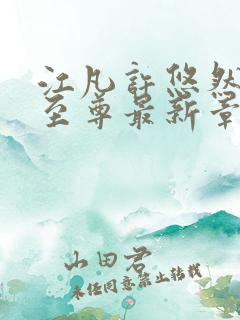 江凡许悠然
至尊最新章
山田君
未经同意禁止转载